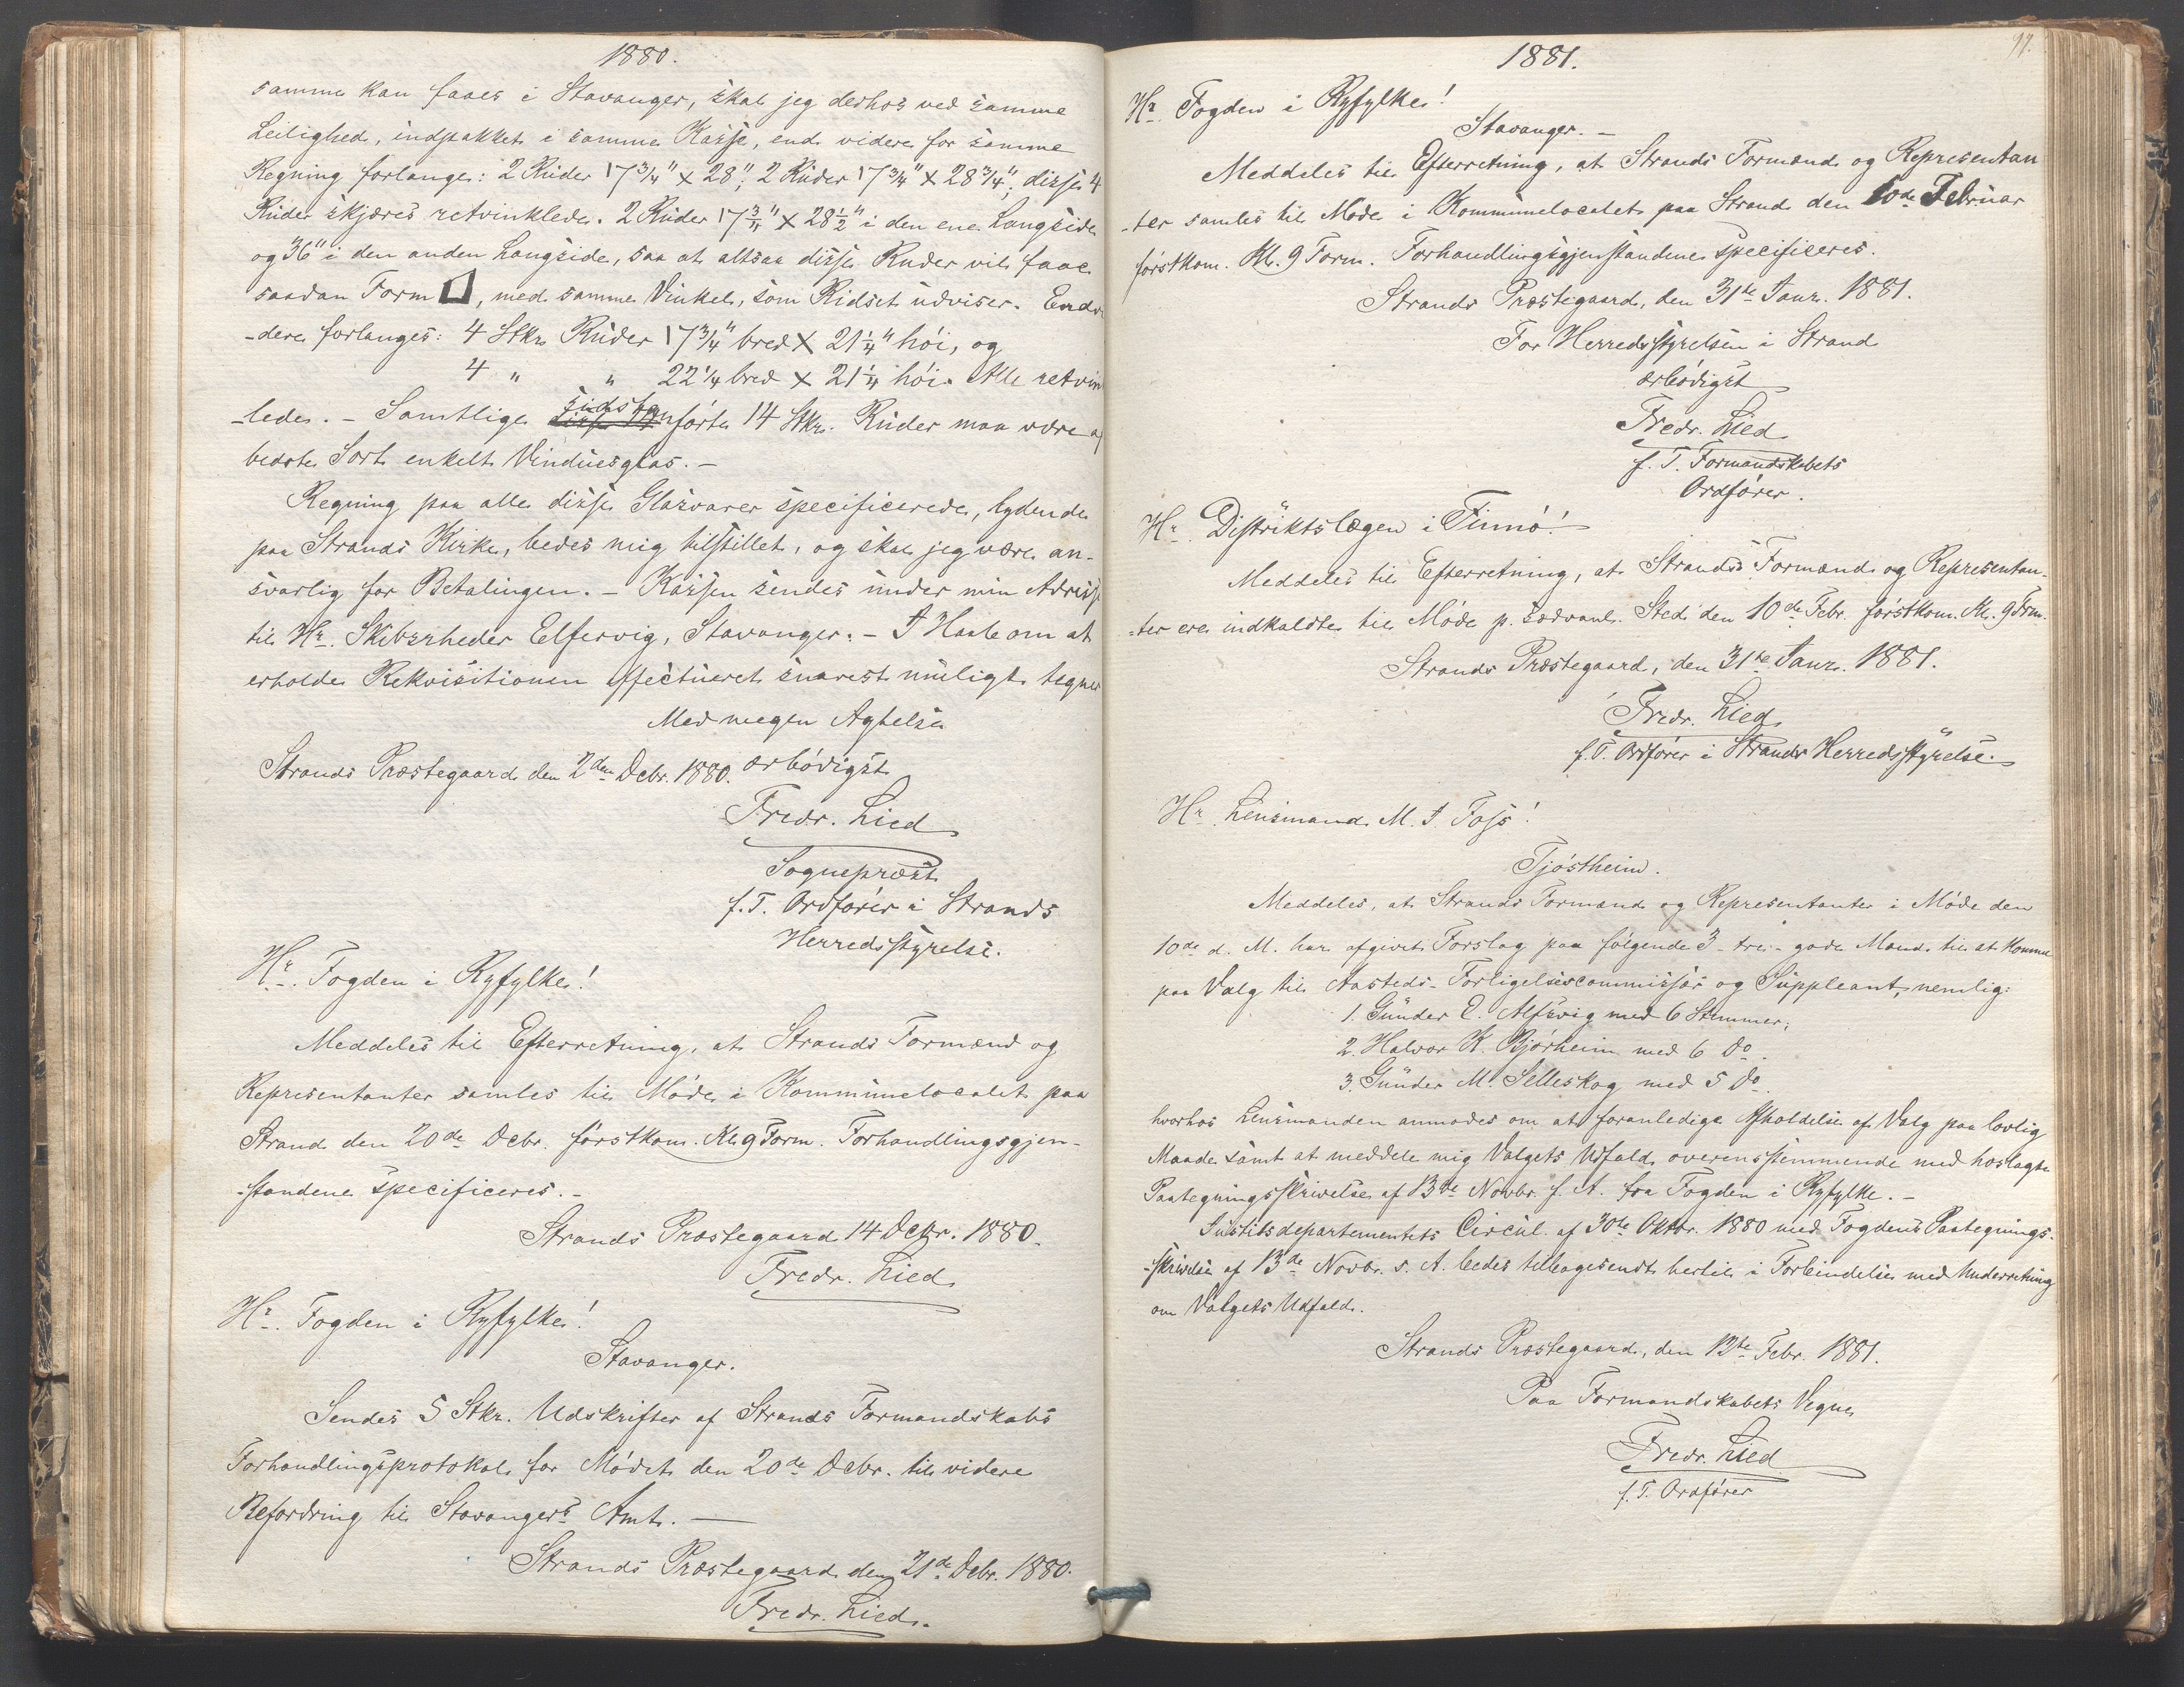 1880.
samme kan faaes i Stavanger, skal jeg derhos ved samme
Leilighed, indpakket i samme Kasse, end videre for samme
Regning forlange: 2 Ruder 17 3/4" x 28", 2 Ruder 17 3/4" x 28 3/4"; disse 4
Ruder skjæres retvinklede. 2 Ruder 17 3/4" x 28 1/2" i den ene Langside
og 36" i den anden Langside, saa at altsaa disse Ruder vil faae
saadan Form , med samme Vinkel, som Ridset udviser. Endvi
-dere forlanges: 4 Stkr Ruder 17 3/4" bred x 21 1/4" høi, og
4 " " 22 1/4 bred x 21 1/4 høi. Alle retvin
-lede. - Samtlige sidstanførte 14 Stkr. Ruder maa være af
bedste Sort enkelt Vinduesglas. -
Regning paa alle disse Glasvarer specificerede, lydende
paa Strands Kirke, bedes mig tilstillet, og skal jeg være an-
svarlig for Betalingen. - Kassen sendes under min Adresse
til Hr. Skibsrheder Elfervig, Stavanger. - I Haab om at
erholde Rekvisitionen effectueret snarest muligt tegner
Med megen Agtelse
Strands Præstegaard den 2den Debr. 1880. ærbødigst
Fredr. Lied
Sogneprest
f.T. Ordfører i Strands
Herredsstyrelse.
Hr. Fogden i Ryfylke!
Meddeles til Efterretning, at Strands Formænd og
Representanter samles til Møde i Kommunelocalet paa
Strand den 20de Debr. førstkom. Kl. 9 Form. Forhandlingsgjen-
-standene specificeres. -
Strands Præstegaard 14 Debr. 1880.
Fredr. Lied
Hr. Fogden i Ryfylke!
Stavanger.
Sendes 5 Stkr. Udskrifter af Strands Formandskabs
Forhandlingsprotokol for Mødet den 20de Debr. til videre
Befordring til Stavangers Amt. -
Strands Præstegaard den 21de Debr. 1880.
Fredr. Lied.
97.
1881.
Hr. Fogden i Ryfylke!
Stavanger. -
Meddeles til Efterretning, at Strands Formænd og Representan
-ter samles til Møde i Kommunelocalet paa Strand den 10de Februar
førstkom. Kl. 9 Form. Forhandlingsgjenstandene specificeres.
Strands Præstegaard, den 31te Janr. 1881.
For Herredsstyrelsen i Strand
ærbødigst
Fredr. Lied
f. T. Formandskabets
Ordfører.
Hr. Distriktslægen i Finnø!
Meddeles til Efterretning, at Strands Formænd og Representan-
-ter ere indkaldte til Møde p. sædvanl. Sted den 10de Febr. førstkom. Kl. 9 Frm.
Strands Præstegaard, den 31te Janr. 1881.
Fredr. Lied
f.T. Ordfører i Strands Herredsstyrelse.
Hr. Lensmand M. I. Foss!
Tjøstheim.
Meddeles, at Strands Formænd og Representanter i Møde den
10de d. M. har afgivet Forslag paa følgende 3 - tre - gode Mænd til at komme
paa Valg til Aasteds-Forligelsescommissær og Suppleant, nemlig:
1. Gunder E. Alfsvig med 6 Stemmer,
2. Halvor K. Bjørheim med 6 Do.
3. Gunder M. Selleskog med 5 Do.
hvorhos Lensmanden anmodes om at foranledige Afholdelse af Valg paa lovlig
Maade samt at meddele mig Valgets Udfald overensstemmende med hoslagte
Paategningsskrivelse af 13de Novbr. f. A. fra Fogden i Ryfylke. -
Justitsdepartementets Circul. af 30te Oktbr. 1880 med Fogdens Paategnings-
-skrivelse af 13de Novbr. s. A. bedes tilbagesendt hertil i Forbindelse med Underretning
om Valgets Udfald.
Strands Præstegaard, den 12te Febr. 1881.
Paa Formandskabets Vegne
Fredr. Lied
f.T. Ordfører